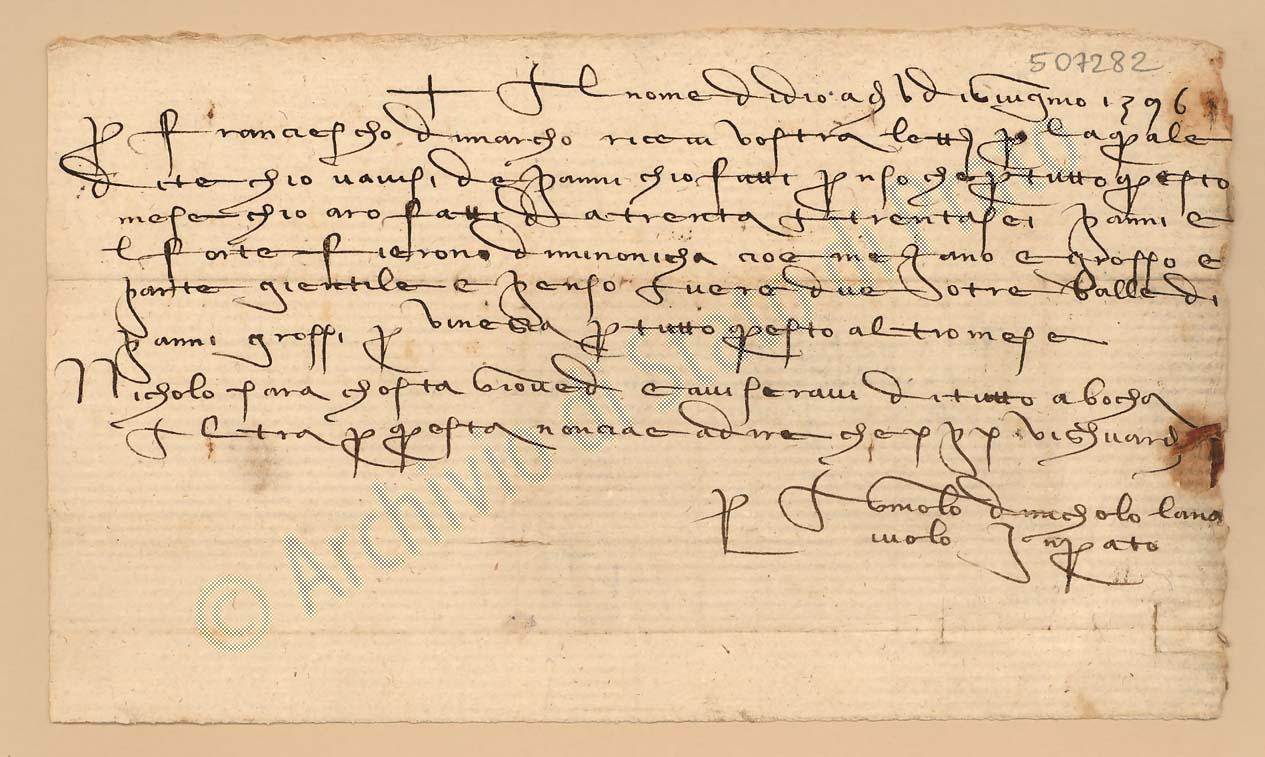 507282
+ Il nome didio a dì V di giugnio 1396
P Franciescho dimarcho ricevi vostra lett p laquale
dite chio vavisi de panni chio fatti penso che p tutto questo
mese chio aro fatti da trenta I trentasei panni e
l forte fierono diminonicha cioe mezano e grosso e
parte gientile e penso avere due o tre balle di
panni grossi p vinesia p tutto questo altro mese
Nicholo sara chosta giovedi e aviseravi di tutto a bocha
Altra p questa non cia e a dire che p vighuardi
P nicholo lana
iuolo In prato
© Archivio di Stato di Prato